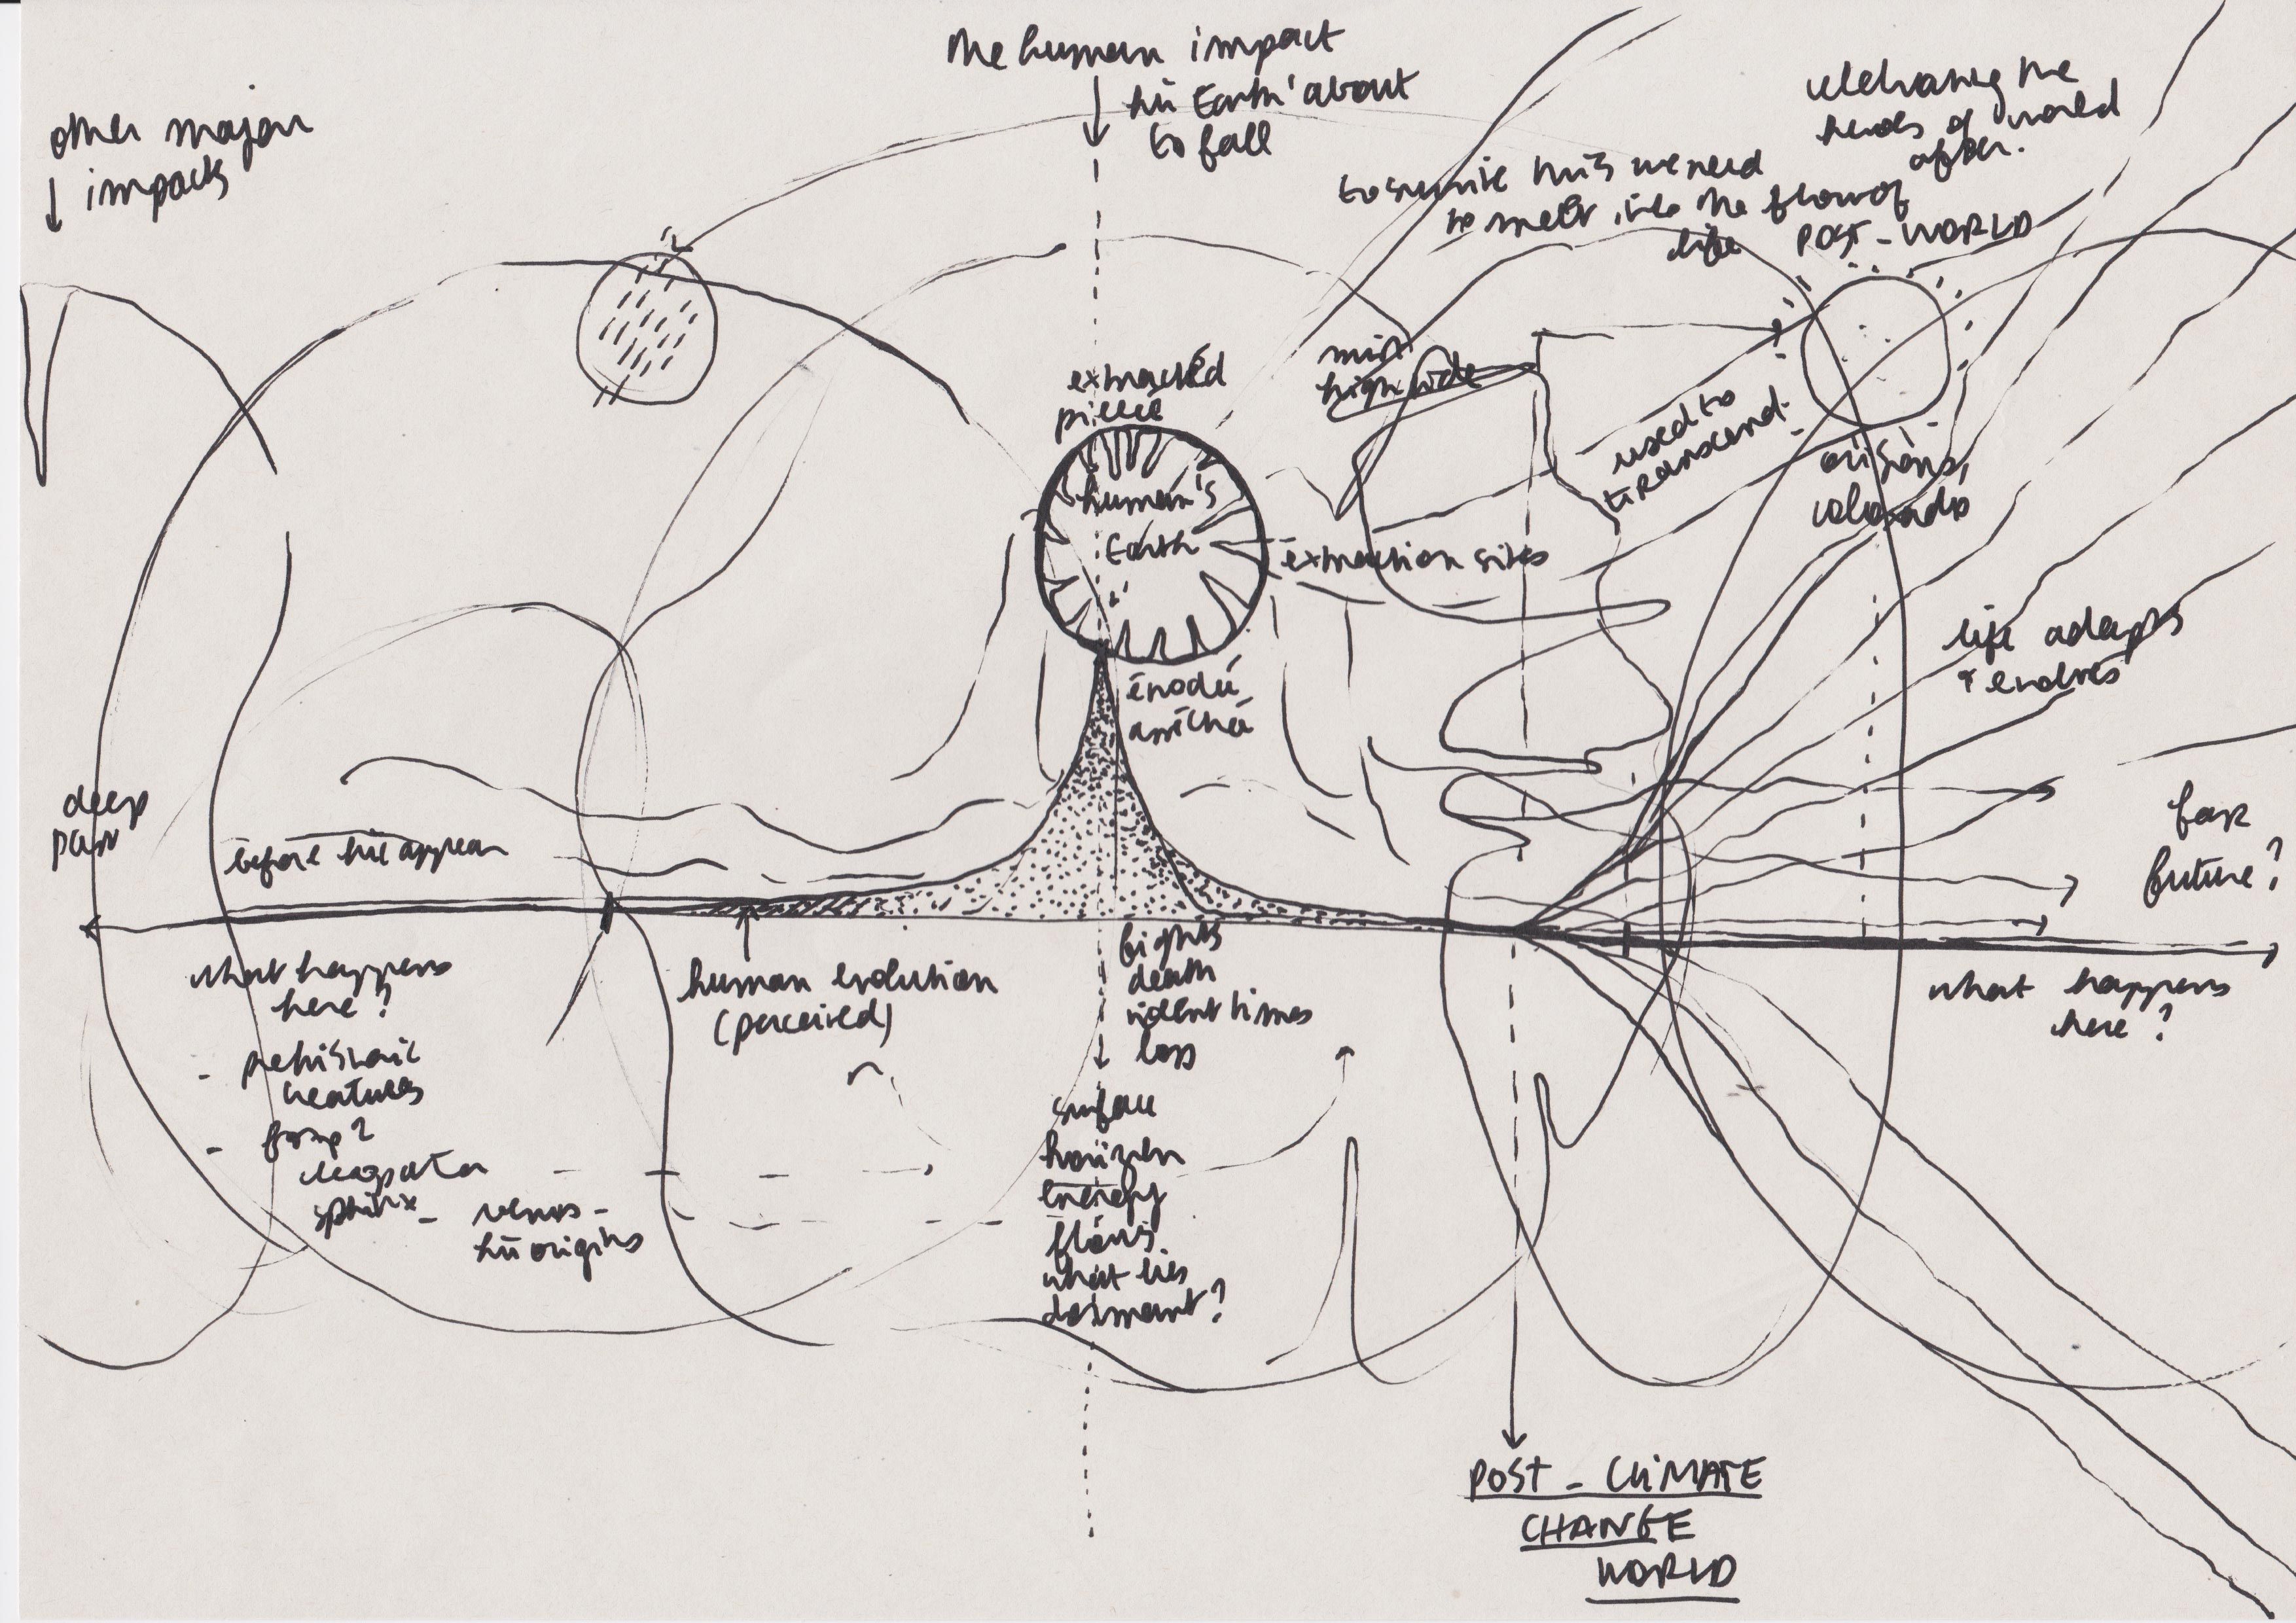 other major
impacts
the human impact
hū Earth' about
to fall
the
of world
after.
to survive this we need
to melt into the flow of
life
POST-WORLD
extracted
piece
human's
Earth
extraction sites
high tide
used to
transcend.
origins,
life adapts
& evolves
deep
past
before hū appear
what happens
here?
human evolution
(perceived)
fights
death
violent times
loss
far
future?
what happens
here?
- prehistoric
creatures
-
sphinx
- venus -
hū origins
surface
horizon
energy
flows
what lies
dormant?
POST - CLIMATE
CHANGE
WORLD